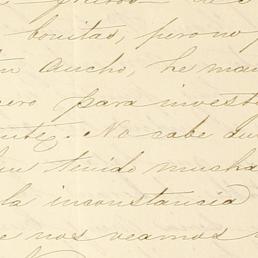 bonitas, pero no p
ancho, he man
ero para invest
No cabe du
tenido mucha
la inconstancia
e nos veamos